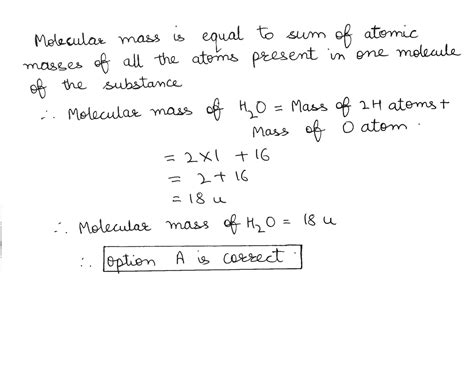 Molecular mass is equal to sum of atomic
masses of all the atoms present in one molecule
of the substance
∴ Molecular mass of H₂O = Mass of 2H atoms +
Mass of O atom.
= 2×1 + 16
= 2+16
= 18 u
∴ Molecular mass of H₂O = 18 u
∴ option A is correct.